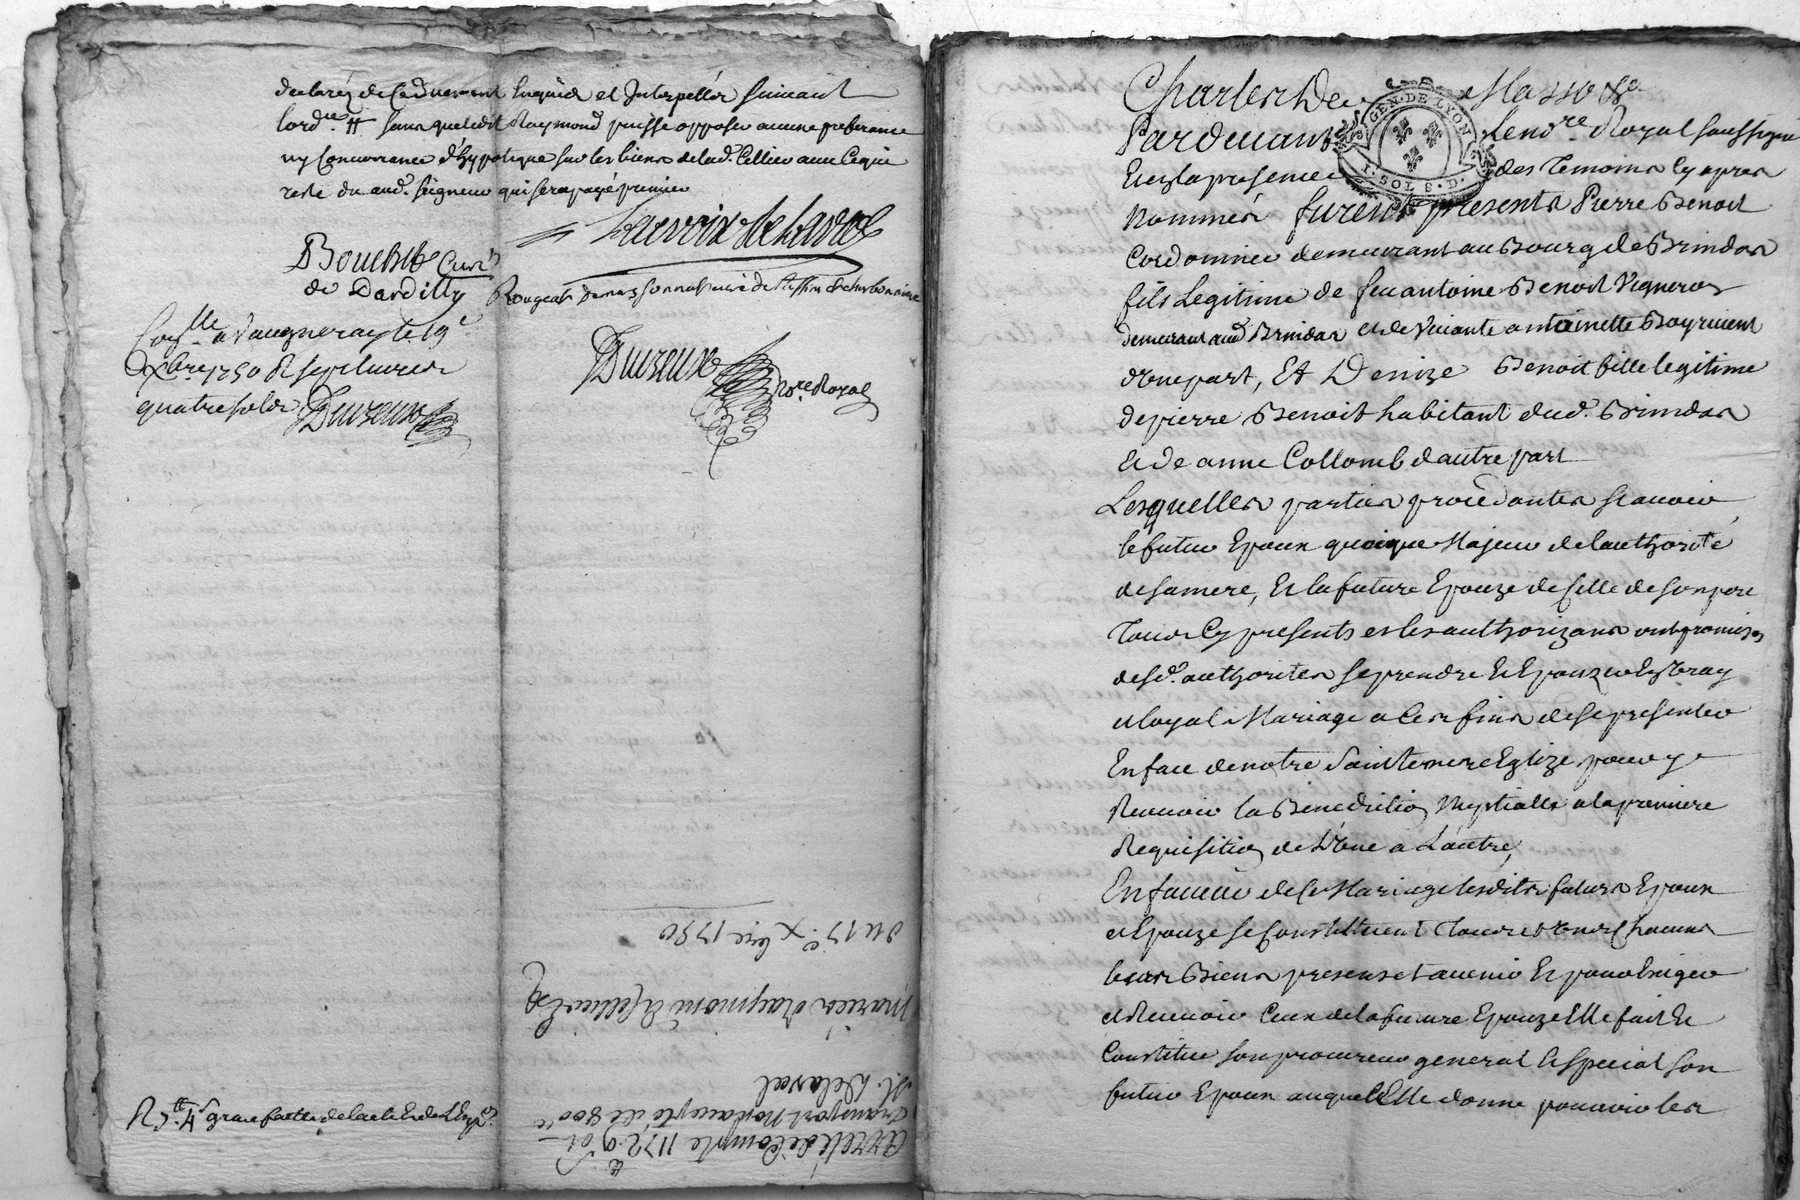 declarés de ce duement Enquis et Interpellés suivant
lord.ce # sans que ledit Raymond puisse opposer aucune preferance
ny Concurrence d'hypoteque sur les biens de lad. Cellier avec Ce qui
reste du aud. seigneur qui sera payé premier
Lacroix de Laval
Bouchib Curé
de Dardilly
Duzeux
No.re Royal
Con.lle a Vaugneray le 19e
Xbre 1750 R sept livres
quatre sols Duzeux
du 17e Xbre 1750
Mariés Raymond & Cellier
M. Delaval
transport Nonaccepté de 800
arreté de Compte 1172
GEN. DE LYON
I. SOL 8. D.
Pardevant le no.re Royal soussigné
En la presence des Temoins Cy apres
Nommés furent presents Pierre Benoit
Cordonnier demeurant au Bourg de Brindas
fils Legitime de feu antoine Benoit Vigneron
demeurant aud Brindas et de Vivante antoinette Bayrivent
d'une part, Et Denize Benoit fille legitime
de pierre Benoit habitant dud. Brindas
et de anne Collomb d'autre part
Lesquelles parties procedantes scavoir
le futur Epoux quoique Majeur de l'authorité
de sa mere, Et la future Epouze de Celle de son pere
Tous Cy presents et les authorizans ont promis
desd. authorites se prendre et Epouzer En Vray
et loyal Mariage a Ces fins de se presenter
En face de notre Sainte mere Eglize pour y
Recevoir la Benediction Nuptialle a la premiere
Requisition de L'Une a L'autre,
En faveur de Ce Mariage lesdits futurs Epoux
et Epouze se Constituent Tous et Uns Chacuns
leurs Biens presens et avenir Et pour Exiger
et Recevoir Ceux de la future Epouze Elle fait Et
Constitue son procureur general et special son
futur Epoux auquel Elle donne pouvoir les